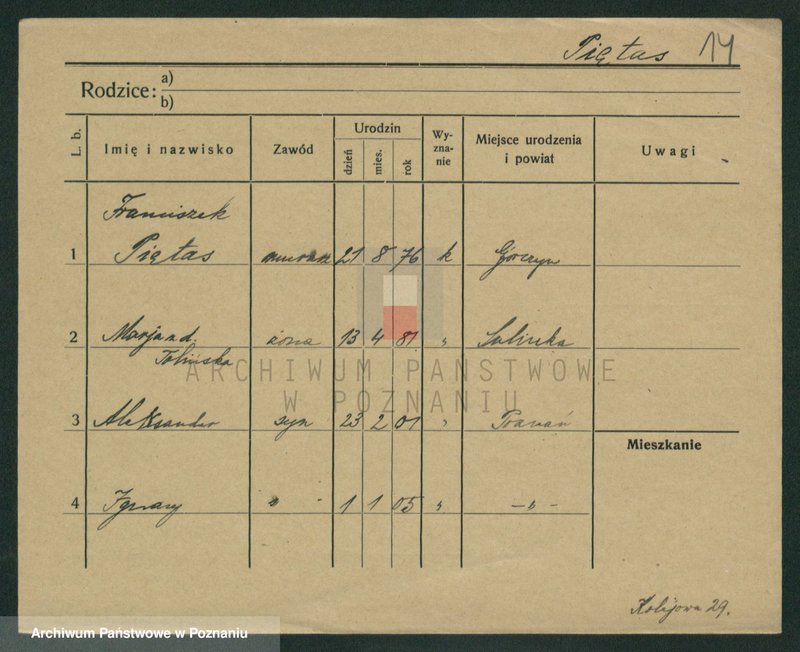 Piętas 14
Rodzice: a)
b)
L. b. Imię i nazwisko Zawód Urodzin dzień mies. rok Wy-zna-nie Miejsce urodzenia i powiat Uwagi
Franciszek
1 Piętas murarz 21 8 76 k Górczyn
2 Marja n d. żona 13 4 81 "
Tolińska
3 Aleksander syn 23 2 01 " Poznań
Mieszkanie
4 Ignacy " - 1 1 05 " - " -
Kolejowa 29.
ARCHIWUM PAŃSTWOWE
W POZNANIU
Archiwum Państwowe w Poznaniu